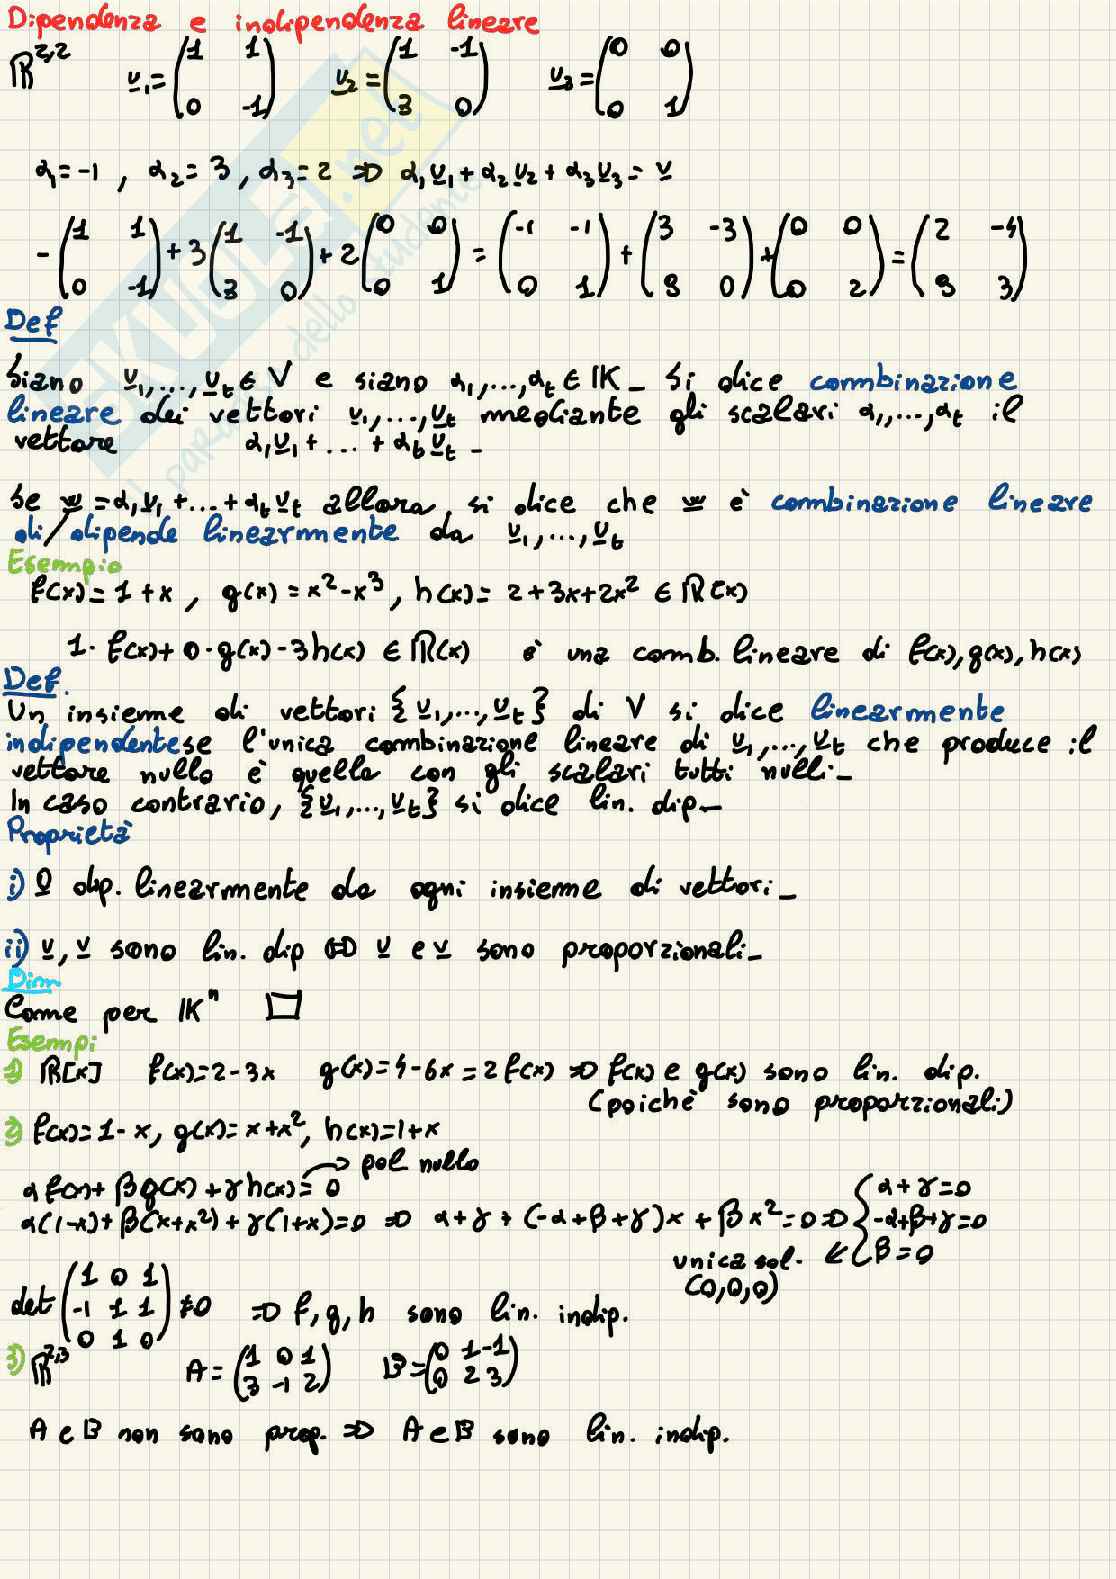 Dipendenza e indipendenza lineare
ℝ²,² u₁=(1 1 / 0 -1) u₂=(1 -1 / 3 0) u₃=(0 0 / 0 1)
α₁=-1 , α₂=3 , α₃=2 ⇒ α₁u₁+α₂u₂+α₃u₃=v
-(1 1 / 0 -1)+3(1 -1 / 3 0)+2(0 0 / 0 1)=(-1 -1 / 0 1)+(3 -3 / 9 0)+(0 0 / 0 2)=(2 -4 / 9 3)
Def
Siano u₁,...,uₜ ∈ V e siano α₁,...,αₜ ∈ IK_ Si dice combinazione
lineare dei vettori u₁,...,uₜ mediante gli scalari α₁,...,αₜ il
vettore α₁u₁+...+αₜuₜ _
Se w=α₁u₁+...+αₜuₜ allora, si dice che w è combinazione lineare
di/dipende linearmente da u₁,...,uₜ
Esempio
f(x)=1+x , g(x)=x²-x³ , h(x)=2+3x+2x² ∈ ℝ(x)
1·f(x)+0·g(x)-3h(x) ∈ ℝ(x) è una comb. lineare di f(x),g(x),h(x)
Def.
Un insieme di vettori {u₁,...,uₜ} di V si dice linearmente
indipendente se l'unica combinazione lineare di u₁,...,uₜ che produce il
vettore nullo è quella con gli scalari tutti nulli_
In caso contrario, {u₁,...,uₜ} si dice lin. dip_
Proprietà
i) 0 dip. linearmente da ogni insieme di vettori_
ii) u, v sono lin. dip ⇔ u e v sono proporzionali_
Dim
Come per IKⁿ □
Esempi
1) ℝ[x] f(x)=2-3x g(x)=4-6x=2f(x) ⇒ f(x) e g(x) sono lin. dip.
(poichè sono proporzionali)
2) f(x)=1-x, g(x)=x+x², h(x)=1+x
αf(x)+βg(x)+γh(x)=0 → pol nullo
α(1-x)+β(x+x²)+γ(1+x)=0 ⇒ α+γ+(-α+β+γ)x+βx²=0 ⇒ {α+γ=0 / -α+β+γ=0 / β=0
unica sol. ⇐
(0,0,0)
det(1 0 1 / -1 1 1 / 0 1 0)≠0 ⇒ f,g,h sono lin. indip.
3) ℝ²,³ A=(1 0 1 / 3 -1 2) B=(0 1 -1 / 0 2 3)
A e B non sono prop. ⇒ A e B sono lin. indip.
SKUOLA.net